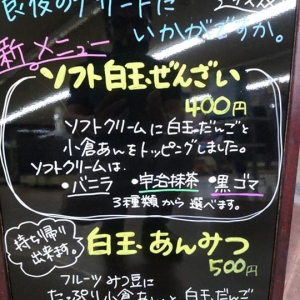 食後のデザートに
いかがですか。
新。メニュー
ソフト白玉ぜんざい
400円
ソフトクリームに白玉だんごと
小倉あんをトッピングしました。
ソフトクリームは
・バニラ ・宇治抹茶 ・黒ゴマ
3種類から選べます。
持ち帰り
出来ます。
白玉あんみつ
500円
フルーツみつ豆に
たっぷり小倉あんと白玉だんご